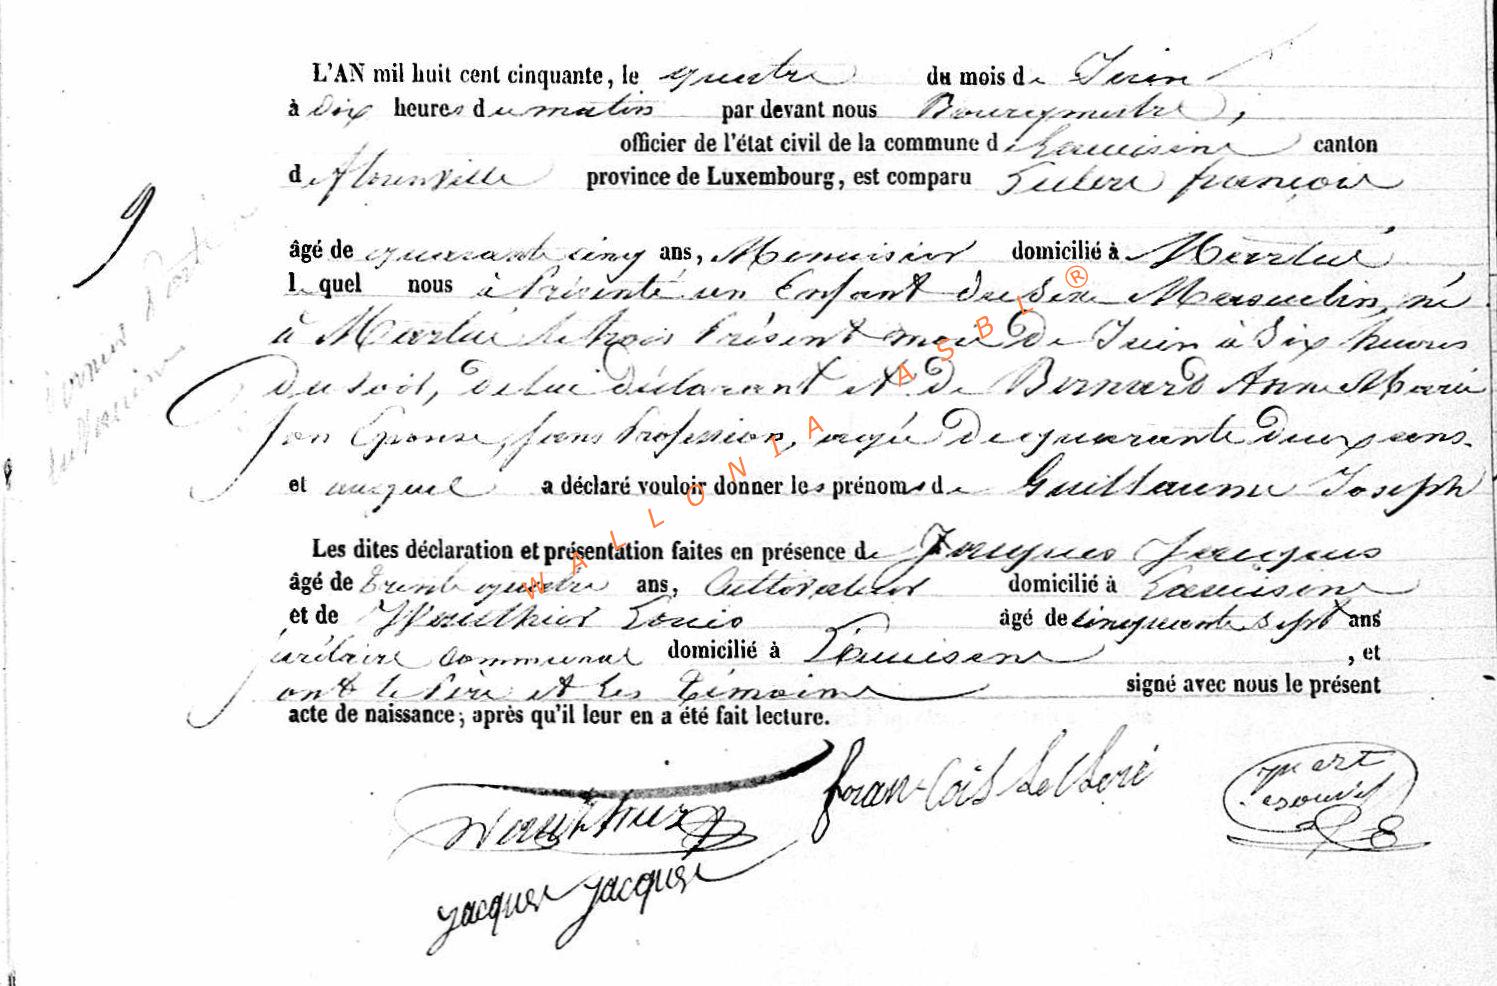 L'AN mil huit cent cinquante, le quatre du mois de Juin
à dix heures du matin par devant nous Bourgmestre,
officier de l'état civil de la commune de Lacuisine canton
de florenville province de Luxembourg, est comparu Leclere françois
9
âgé de quarante cinq ans, Menuisier domicilié à Martué
lequel nous à Présenté un Enfant du Sexe Masculin, né
à Martué le trois Présent mois De Juin à Six heures
Du Soir, De lui Déclarant et De Bernard Anne Marie
Son Epouse, sans Profession, agée De quarante Deux ans
et auquel a déclaré vouloir donner les prénoms de Guillaume Joseph
Les dites déclaration et présentation faites en présence de Jacques Jacques
âgé de trente quatre ans, Cultivateur domicilié à Lacuisine
et de Wauthier Louis âgé de cinquante Sept ans
Sécrétaire Communal domicilié à Lacuisine , et
ont le Père et les témoins signé avec nous le présent
acte de naissance, après qu'il leur en a été fait lecture.
WALLONIA ASBL ®
françois Le Clere
Wauthier
Jacques Jacques